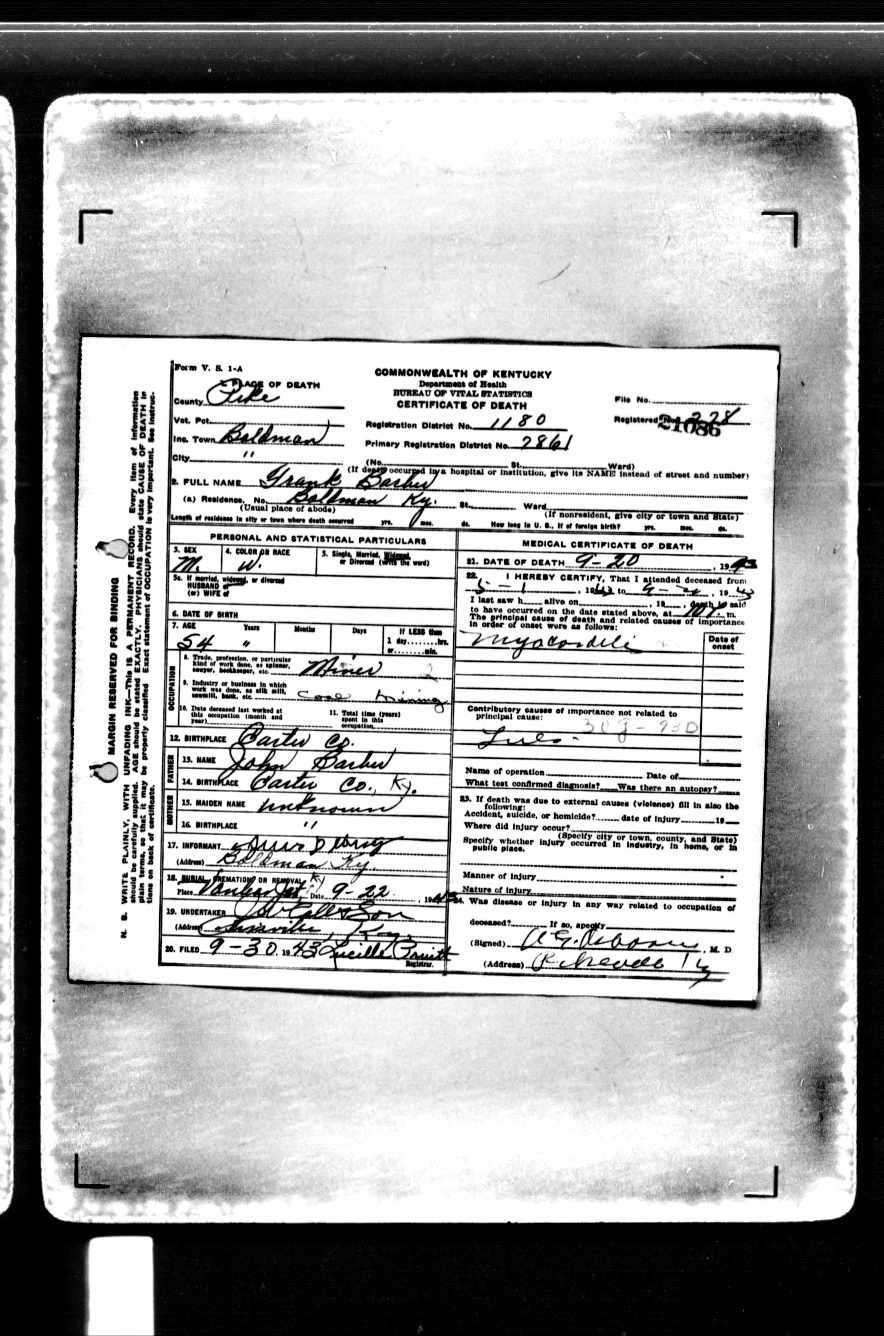 Form V. S. 1-A
COMMONWEALTH OF KENTUCKY
Department of Health
BUREAU OF VITAL STATISTICS
CERTIFICATE OF DEATH
1 PLACE OF DEATH
County Pike
Vot. Pct.
Inc. Town Boldman
City "
Registration District No. 1180
Primary Registration District No. 7861
File No.
Registered No. 228
21086
(No. St. Ward)
(If death occurred in a hospital or institution, give its NAME instead of street and number)
2. FULL NAME Frank Barber
(a) Residence. No. Boldman Ky. St. Ward
(Usual place of abode) (If nonresident, give city or town and State)
Length of residence in city or town where death occurred yrs. mos. ds. How long in U. S., if of foreign birth? yrs. mos. ds.
PERSONAL AND STATISTICAL PARTICULARS
3. SEX M. 4. COLOR OR RACE W. 5. Single, Married, Widowed, or Divorced (write the word)
5a. If married, widowed, or divorced
HUSBAND of
(or) WIFE of
6. DATE OF BIRTH
7. AGE Years Months Days If LESS than
54 " 1 day........hrs.
or........min.
OCCUPATION
8. Trade, profession, or particular
kind of work done, as spinner,
sawyer, bookkeeper, etc. Miner
9. Industry or business in which
work was done, as silk mill,
sawmill, bank, etc. Coal Mining
10. Date deceased last worked at
this occupation (month and
year)
11. Total time (years)
spent in this
occupation
12. BIRTHPLACE Carter Co.
FATHER
13. NAME John Barber
14. BIRTHPLACE Carter Co., Ky.
MOTHER
15. MAIDEN NAME Unknown
16. BIRTHPLACE "
17. INFORMANT
(Address) Boldman Ky.
18. BURIAL, CREMATION OR REMOVAL Ky
Place Vanlear Jct. Date 9-22, 1943
19. UNDERTAKER & Son
(Address) Ky.
20. FILED 9-30, 1943 Lucille Pruitt
Registrar.
MEDICAL CERTIFICATE OF DEATH
21. DATE OF DEATH 9-20, 1943
22. I HEREBY CERTIFY, That I attended deceased from
5-1, 1943 to 9- , 1943
I last saw h alive on , 19 , death is said
to have occurred on the date stated above, at m.
The principal cause of death and related causes of importance
in order of onset were as follows:
Date of
onset
Contributory causes of importance not related to
principal cause:
Lues. 30g-93D
Name of operation Date of
What test confirmed diagnosis? Was there an autopsy?
23. If death was due to external causes (violence) fill in also the
following:
Accident, suicide, or homicide? date of injury 19
Where did injury occur?
(Specify city or town, county, and State)
Specify whether injury occurred in industry, in home, or in
public place.
Manner of injury
Nature of injury
24. Was disease or injury in any way related to occupation of
deceased? If so, specify
(Signed) , M. D.
(Address) Pikeville Ky
MARGIN RESERVED FOR BINDING
N. B. WRITE PLAINLY, WITH UNFADING INK—This is A PERMANENT RECORD. Every item of information
should be carefully supplied. AGE should be stated EXACTLY. PHYSICIANS should state CAUSE OF DEATH in
plain terms, so that it may be properly classified. Exact statement of OCCUPATION is very important. See instruc-
tions on back of certificate.